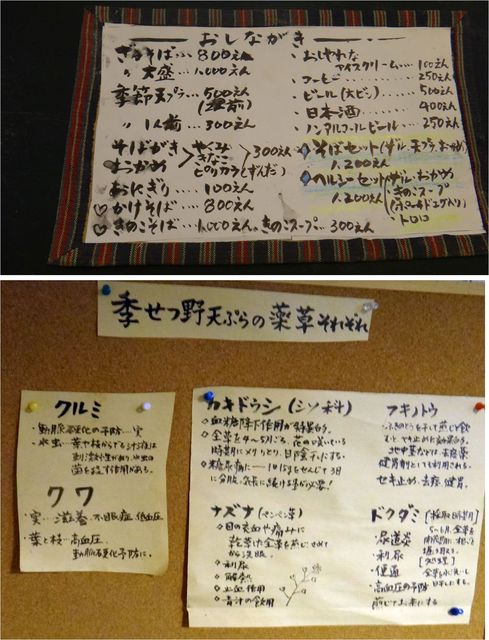 おしながき
ざるそば…800えん
〃 大盛…1,000えん
季節天プラ…500えん
(2人前)
〃 1人前…300えん
そばがき
おかめ
やくみ
きなこ
ピリカラ(ずんだ)
300えん
おにぎり…100えん
♡かけそば…800えん
♡きのこそば…1,000えん
・おしやれな
アイスクリーム…100えん
・コーヒー…250えん
・ビール(大ビン)…500えん
・日本酒…400えん
・ノンアルコールビール…250えん
そばセット(ザル、天プラ、おかめ)
1,200えん
ヘルシーセット(ザル、おかめ
1,200えん
きのこスープ
トロロ
きのこスープ…300えん
季せつ野天ぷらの薬草それぞれ
クルミ
・動脈硬化の予防…実
・水虫…葉や枝からでる汁液は
刺激性があり、水虫の
菌を殺す作用がある。
クワ
・実…滋養、不眠症、低血圧
・葉と枝…高血圧、
動脈硬化予防に。
カキドウシ(シソ科)
血糖降下作用が特異的。
全草を4〜5月ごろ、花の咲いている
時期にメリとり、日陰干しにする。
糖尿病に…1日15gをせんじて3回
に分服、気長に続ける事が必要!
ナズナ(ペンペン草)
目の充血や痛みに
乾燥した全草を煎じさめて
から洗眼。
利尿
解熱
止血作用
青汁の飲用
フキノトウ
ふきのとうを干して煎じて飲
むとせき止めに効果的。
健胃剤としても利用される。
せき止め、去痰、健胃。
ドクダミ
尿道炎
利尿
便通
高血圧の予防
煎じてお茶にする
[採取時期]
5〜6月、全草を
開花期に根ごと
掘り取る。
[処理]
全草を水洗いし
日干しにする。